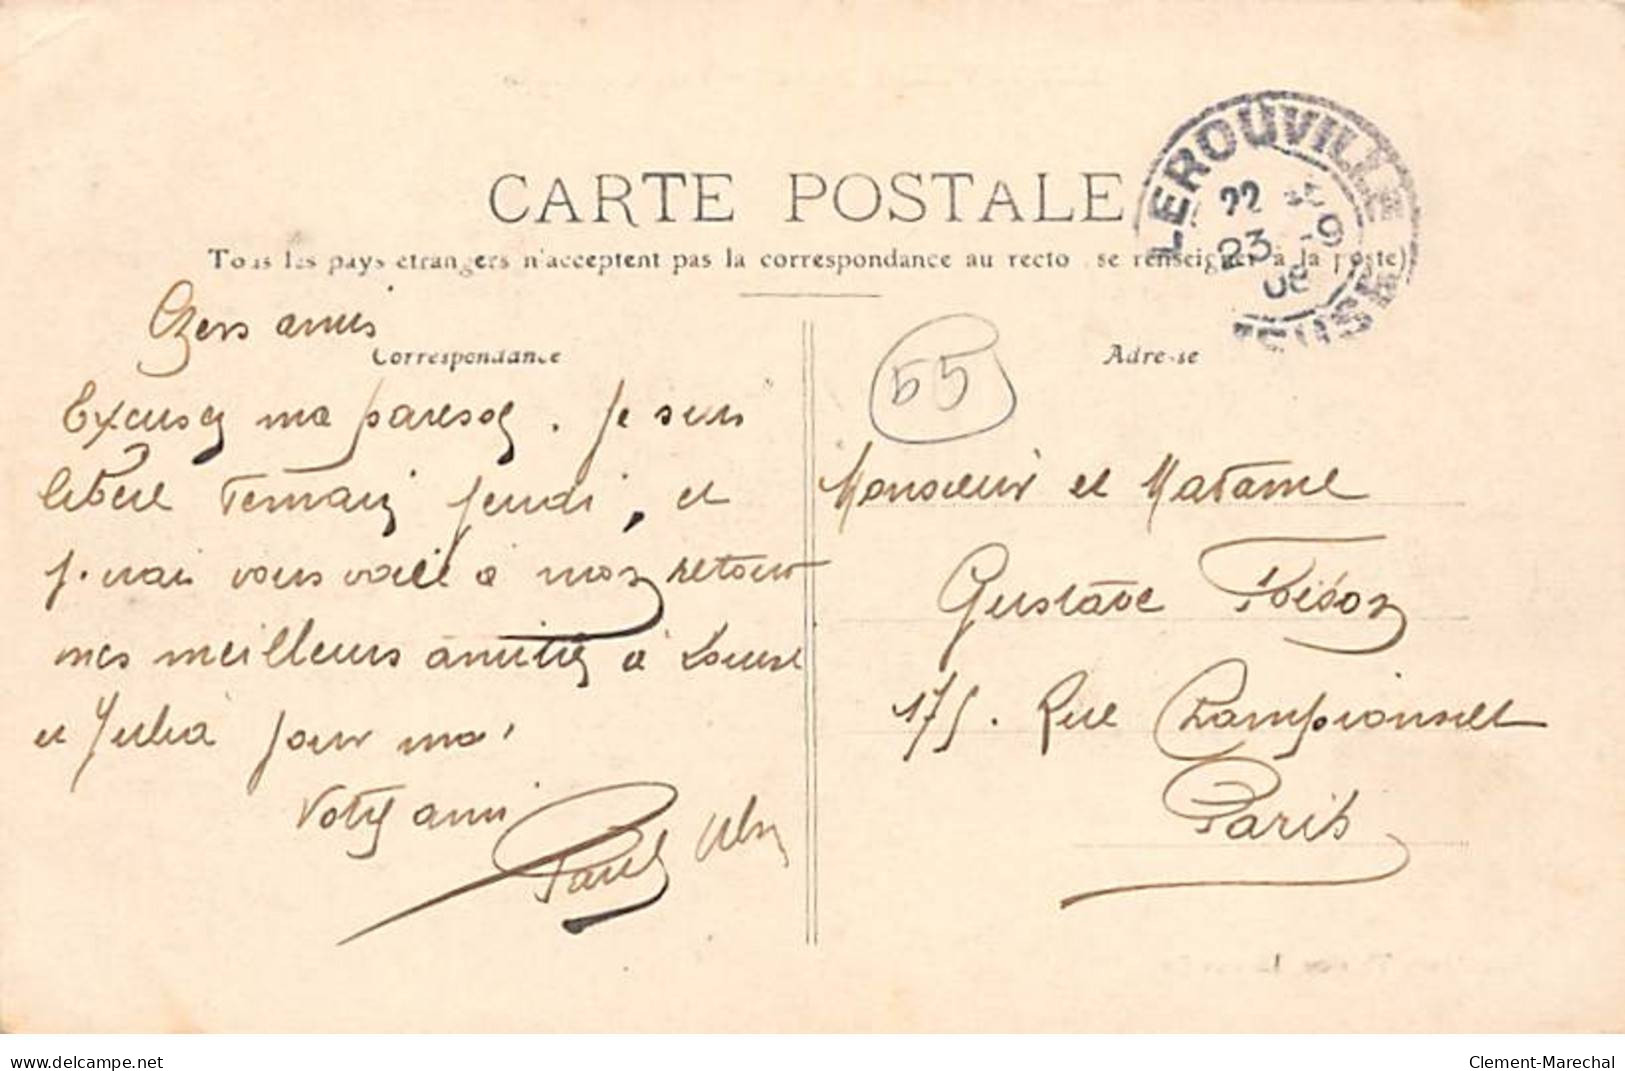 CARTE POSTALE
Tous les pays étrangers n'acceptent pas la correspondance au recto se renseigner à la poste)
LEROUVILLE
22
23 -9
08
MEUSE
Chers amis
Correspondance
Excusez ma paresse. Je suis
libéré demain jeudi, et
j'irai vous voir à mon retour
mes meilleurs amitiés à Louise
et Julia pour moi
Votre ami
Paul
55
Adresse
Monsieur et Madame
Gustave Poison
175. Rue Championnet
Paris
www.delcampe.net
Clement-Marechal